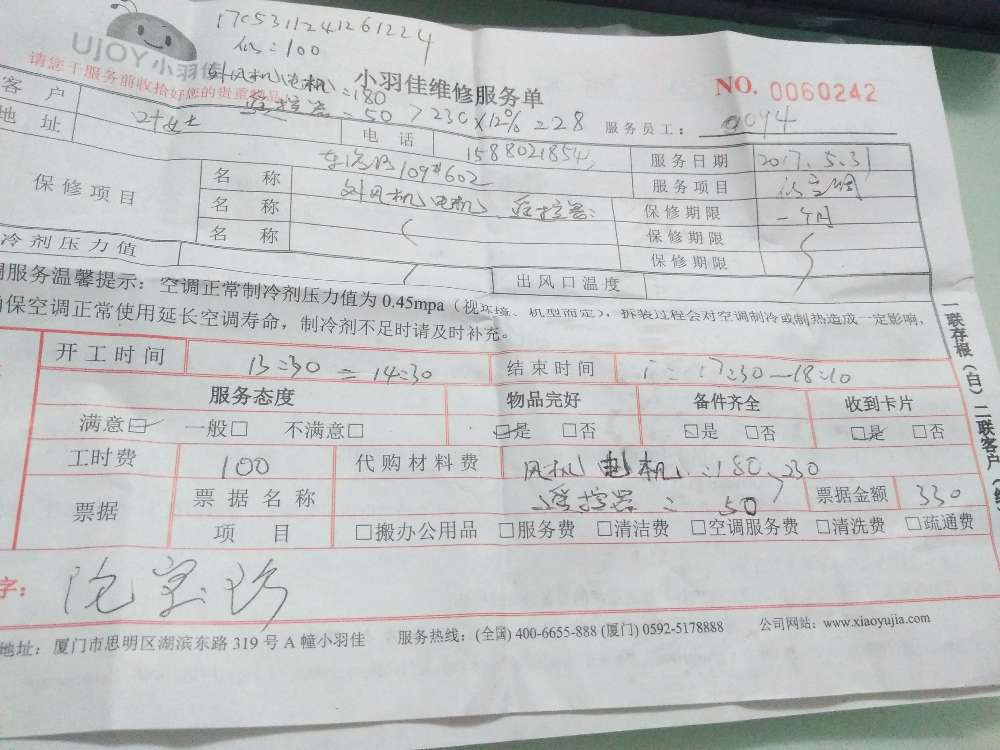 UJOY小羽佳
1705311241261224
修:100
外风机电机:180
遥控器:50 > 230×12%=28
请您于服务前收拾好您的贵重物品
小羽佳维修服务单
NO. 0060242
服务员工: 0094
客 户 叶女士 电 话 服务日期 2017.5.31
地 址 109#602 服务项目 修空调
保修项目 名 称 外风机电机、遥控器: 保修期限 一个月
名 称 保修期限
名 称 保修期限
冷剂压力值 出风口温度
调服务温馨提示:空调正常制冷剂压力值为 0.45mpa(视环境、机型而定),拆装过程会对空调制冷或制热造成一定影响,
确保空调正常使用延长空调寿命,制冷剂不足时请及时补充。
开工时间 13:30 = 14:30 结束时间 17:30-18:10
服务态度 物品完好 备件齐全 收到卡片
满意☑ 一般□ 不满意□ ☑是 □否 ☑是 □否 ☑是 □否
工时费 100 代购材料费 风机电机:180 230
遥控器: 50
票据 票据名称 票据金额 330
项 目 □搬办公用品 □服务费 □清洁费 □空调服务费 □清洗费 □疏通费
字:
地址:厦门市思明区湖滨东路 319 号 A 幢小羽佳 服务热线:(全国) 400-6655-888 (厦门) 0592-5178888 公司网站:www.xiaoyujia.com
一联存根(白)二联客户